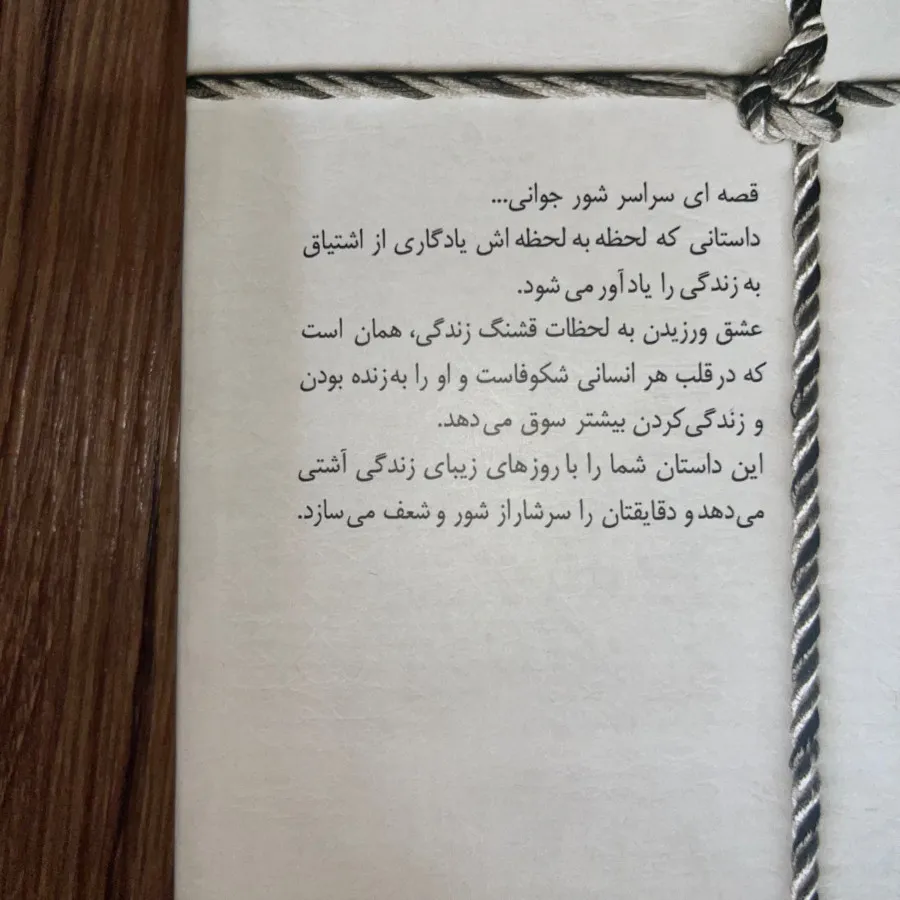 قصه ای سراسر شور جوانی...
داستانی که لحظه به لحظه اش یادگاری از اشتیاق
به زندگی را یادآور می شود.
عشق ورزیدن به لحظات قشنگ زندگی، همان است
که در قلب هر انسانی شکوفاست و او را به زنده بودن
و زندگی کردن بیشتر سوق می دهد.
این داستان شما را با روزهای زیبای زندگی آشتی
می دهد و دقایقتان را سرشار از شور و شعف می سازد.